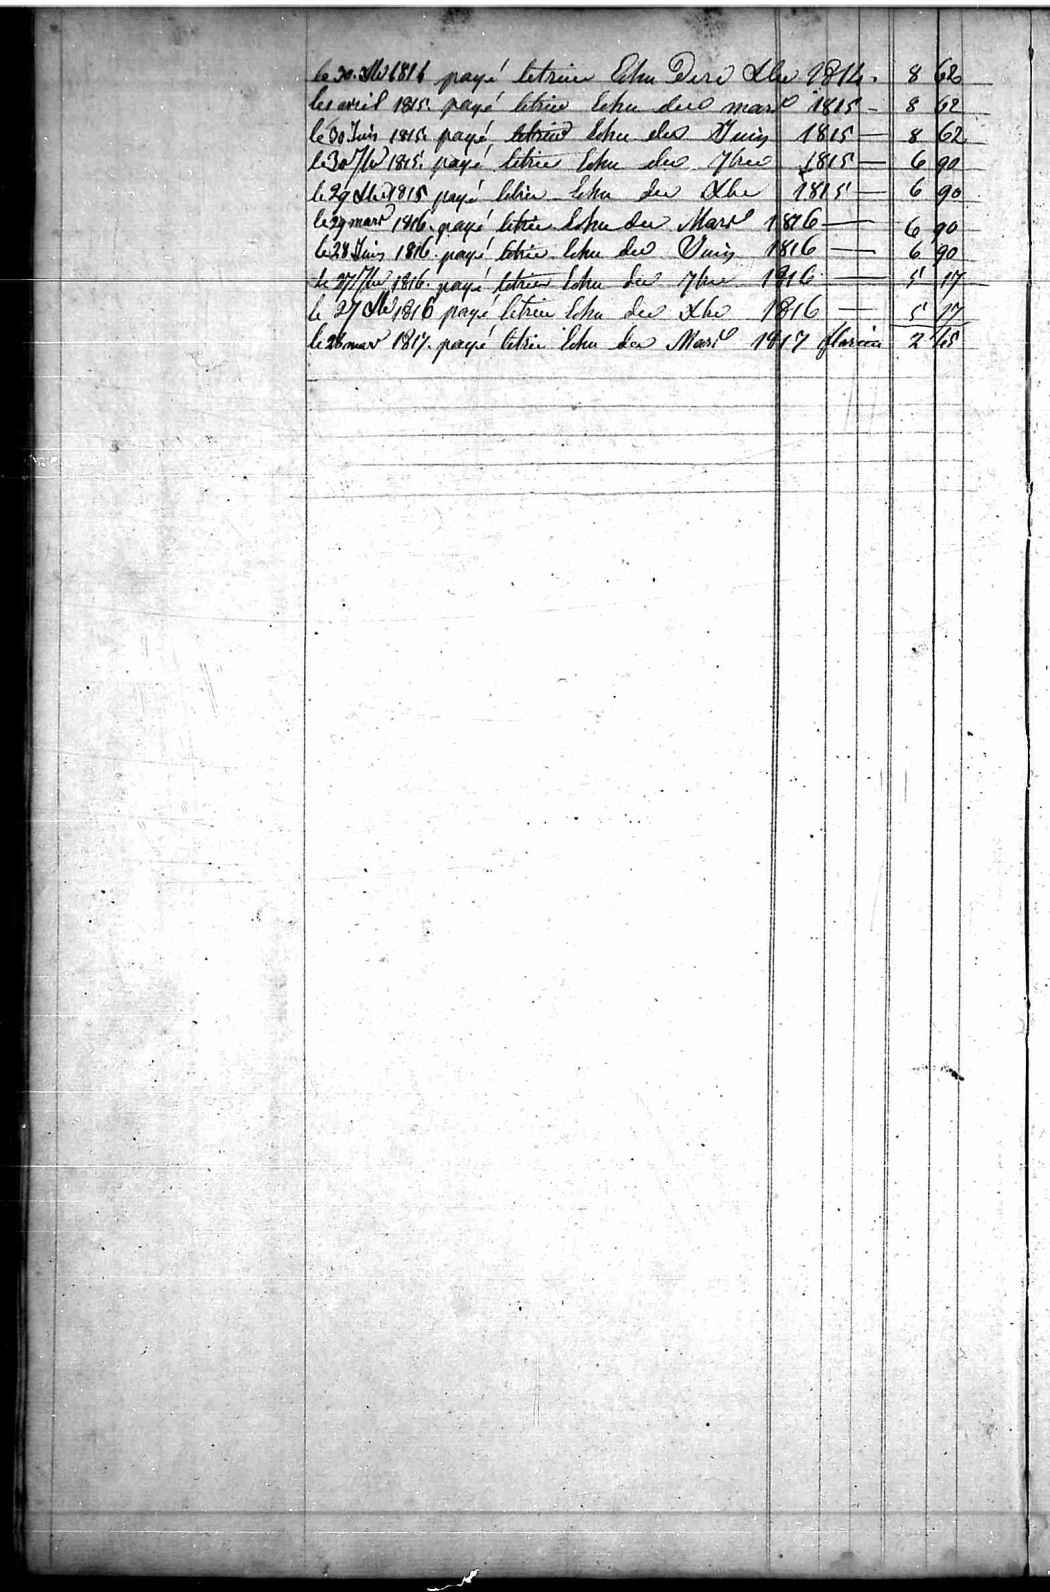 le 30 Xbre 1814 payé letrim Echu Der Xbre 1814. 8 62
le 1 avril 1815. payé letrim Echu du mars 1815 - 8 62
le 30 Juin 1815. payé letrim Echu du Juin 1815 — 8 62
le 30 7bre 1815. payé letrim Echu du 7bre 1815 — 6 90
le 29 Xbre 1815 payé letrim Echu du Xbre 1815 — 6 90
le 29 mars 1816. payé letrim Echu du Mars 1816 — 6 90
le 28 Juin 1816. payé letrim Echu du Juin 1816 — 6 90
le 27 7bre 1816. payé letrim Echu du 7bre 1816 — 5 17
le 27 Xbre 1816 payé letrim Echu du Xbre 1816 — 5 17
le 26 mars 1817. payé letrim Echu du Mars 1817 2